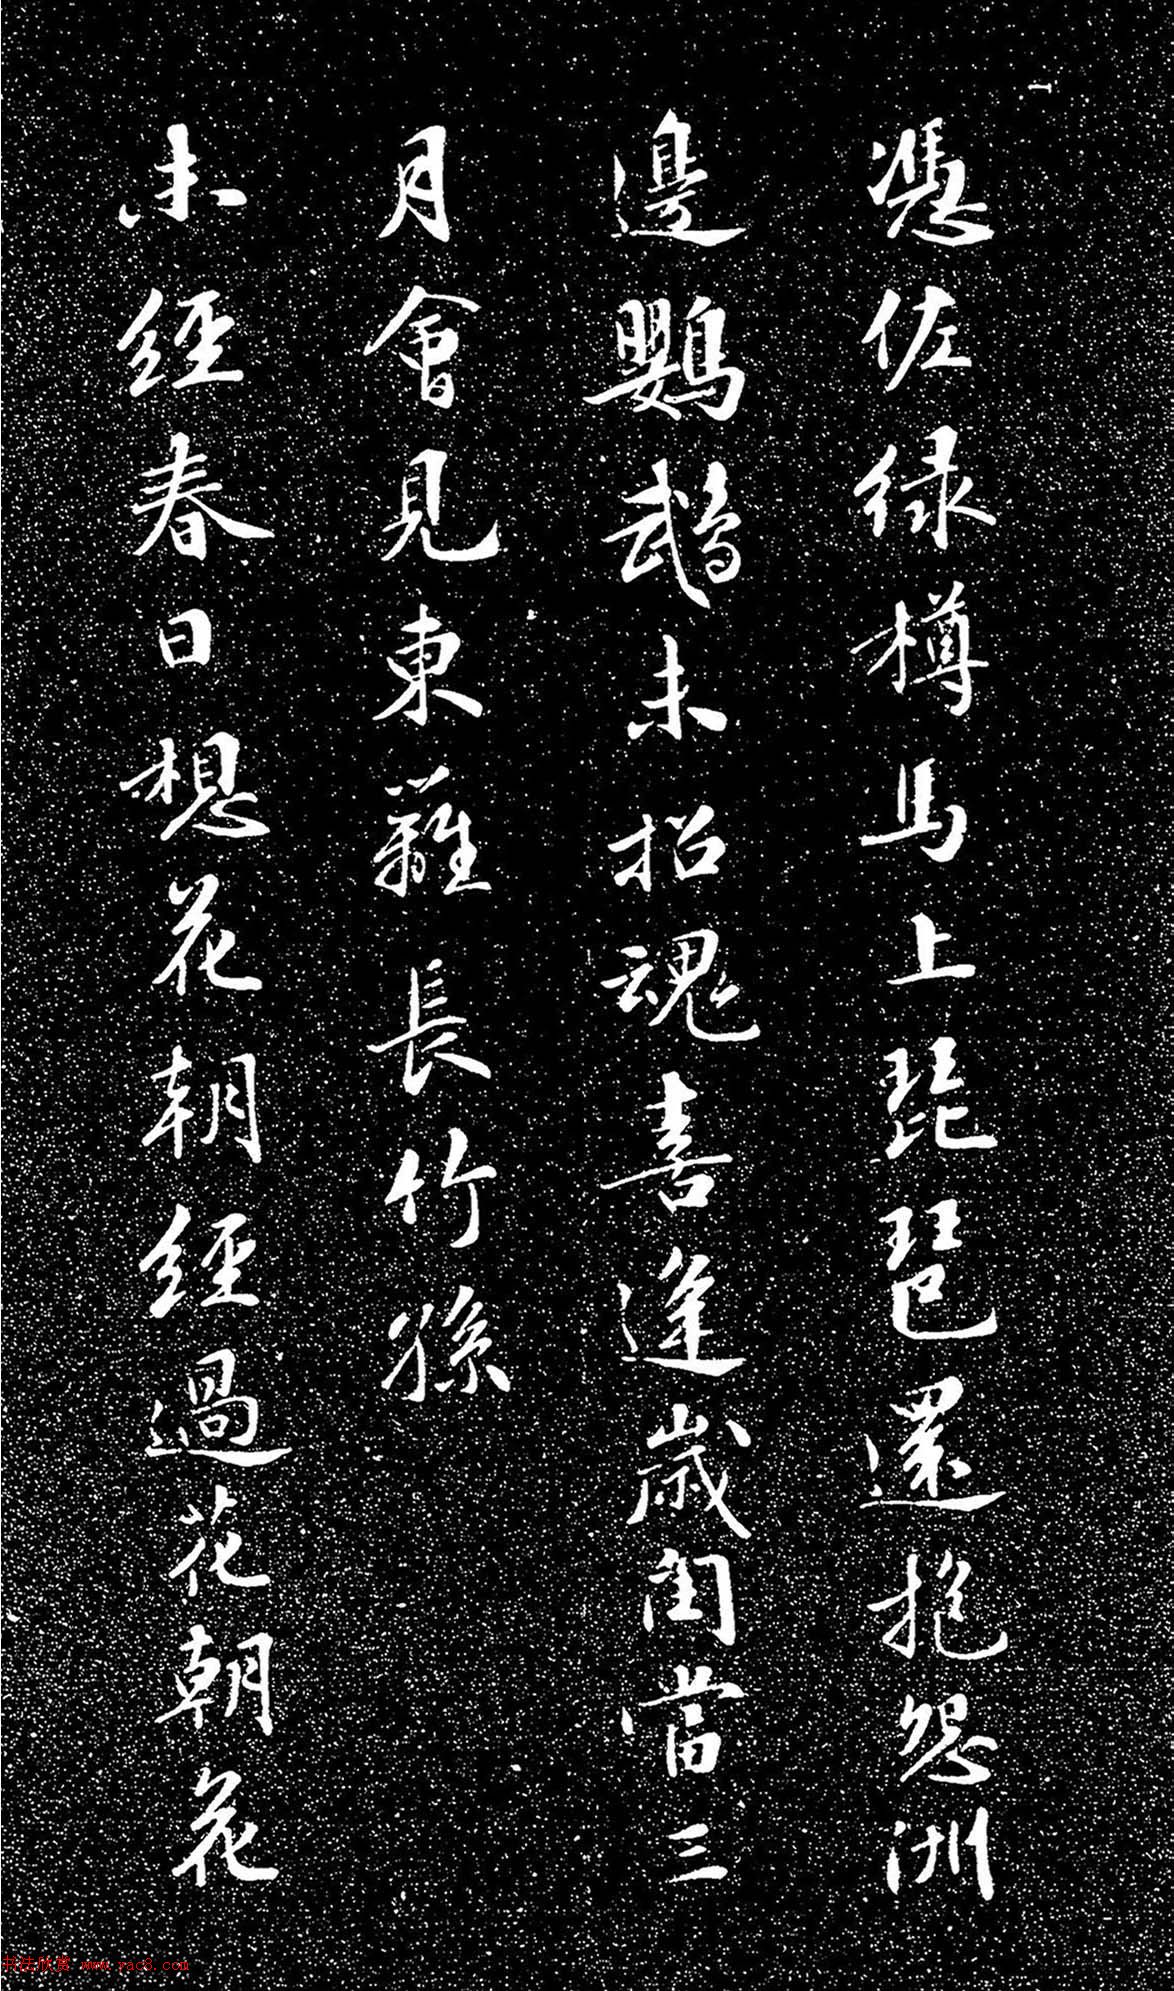 憑佐綠樽馬上琵琶還抱怨洲
邊鸚鵡未招魂喜逢歲閏當三
月會見東籬長竹孫
未經春日想花朝經過花朝花
书法欣赏 www.yac8.com